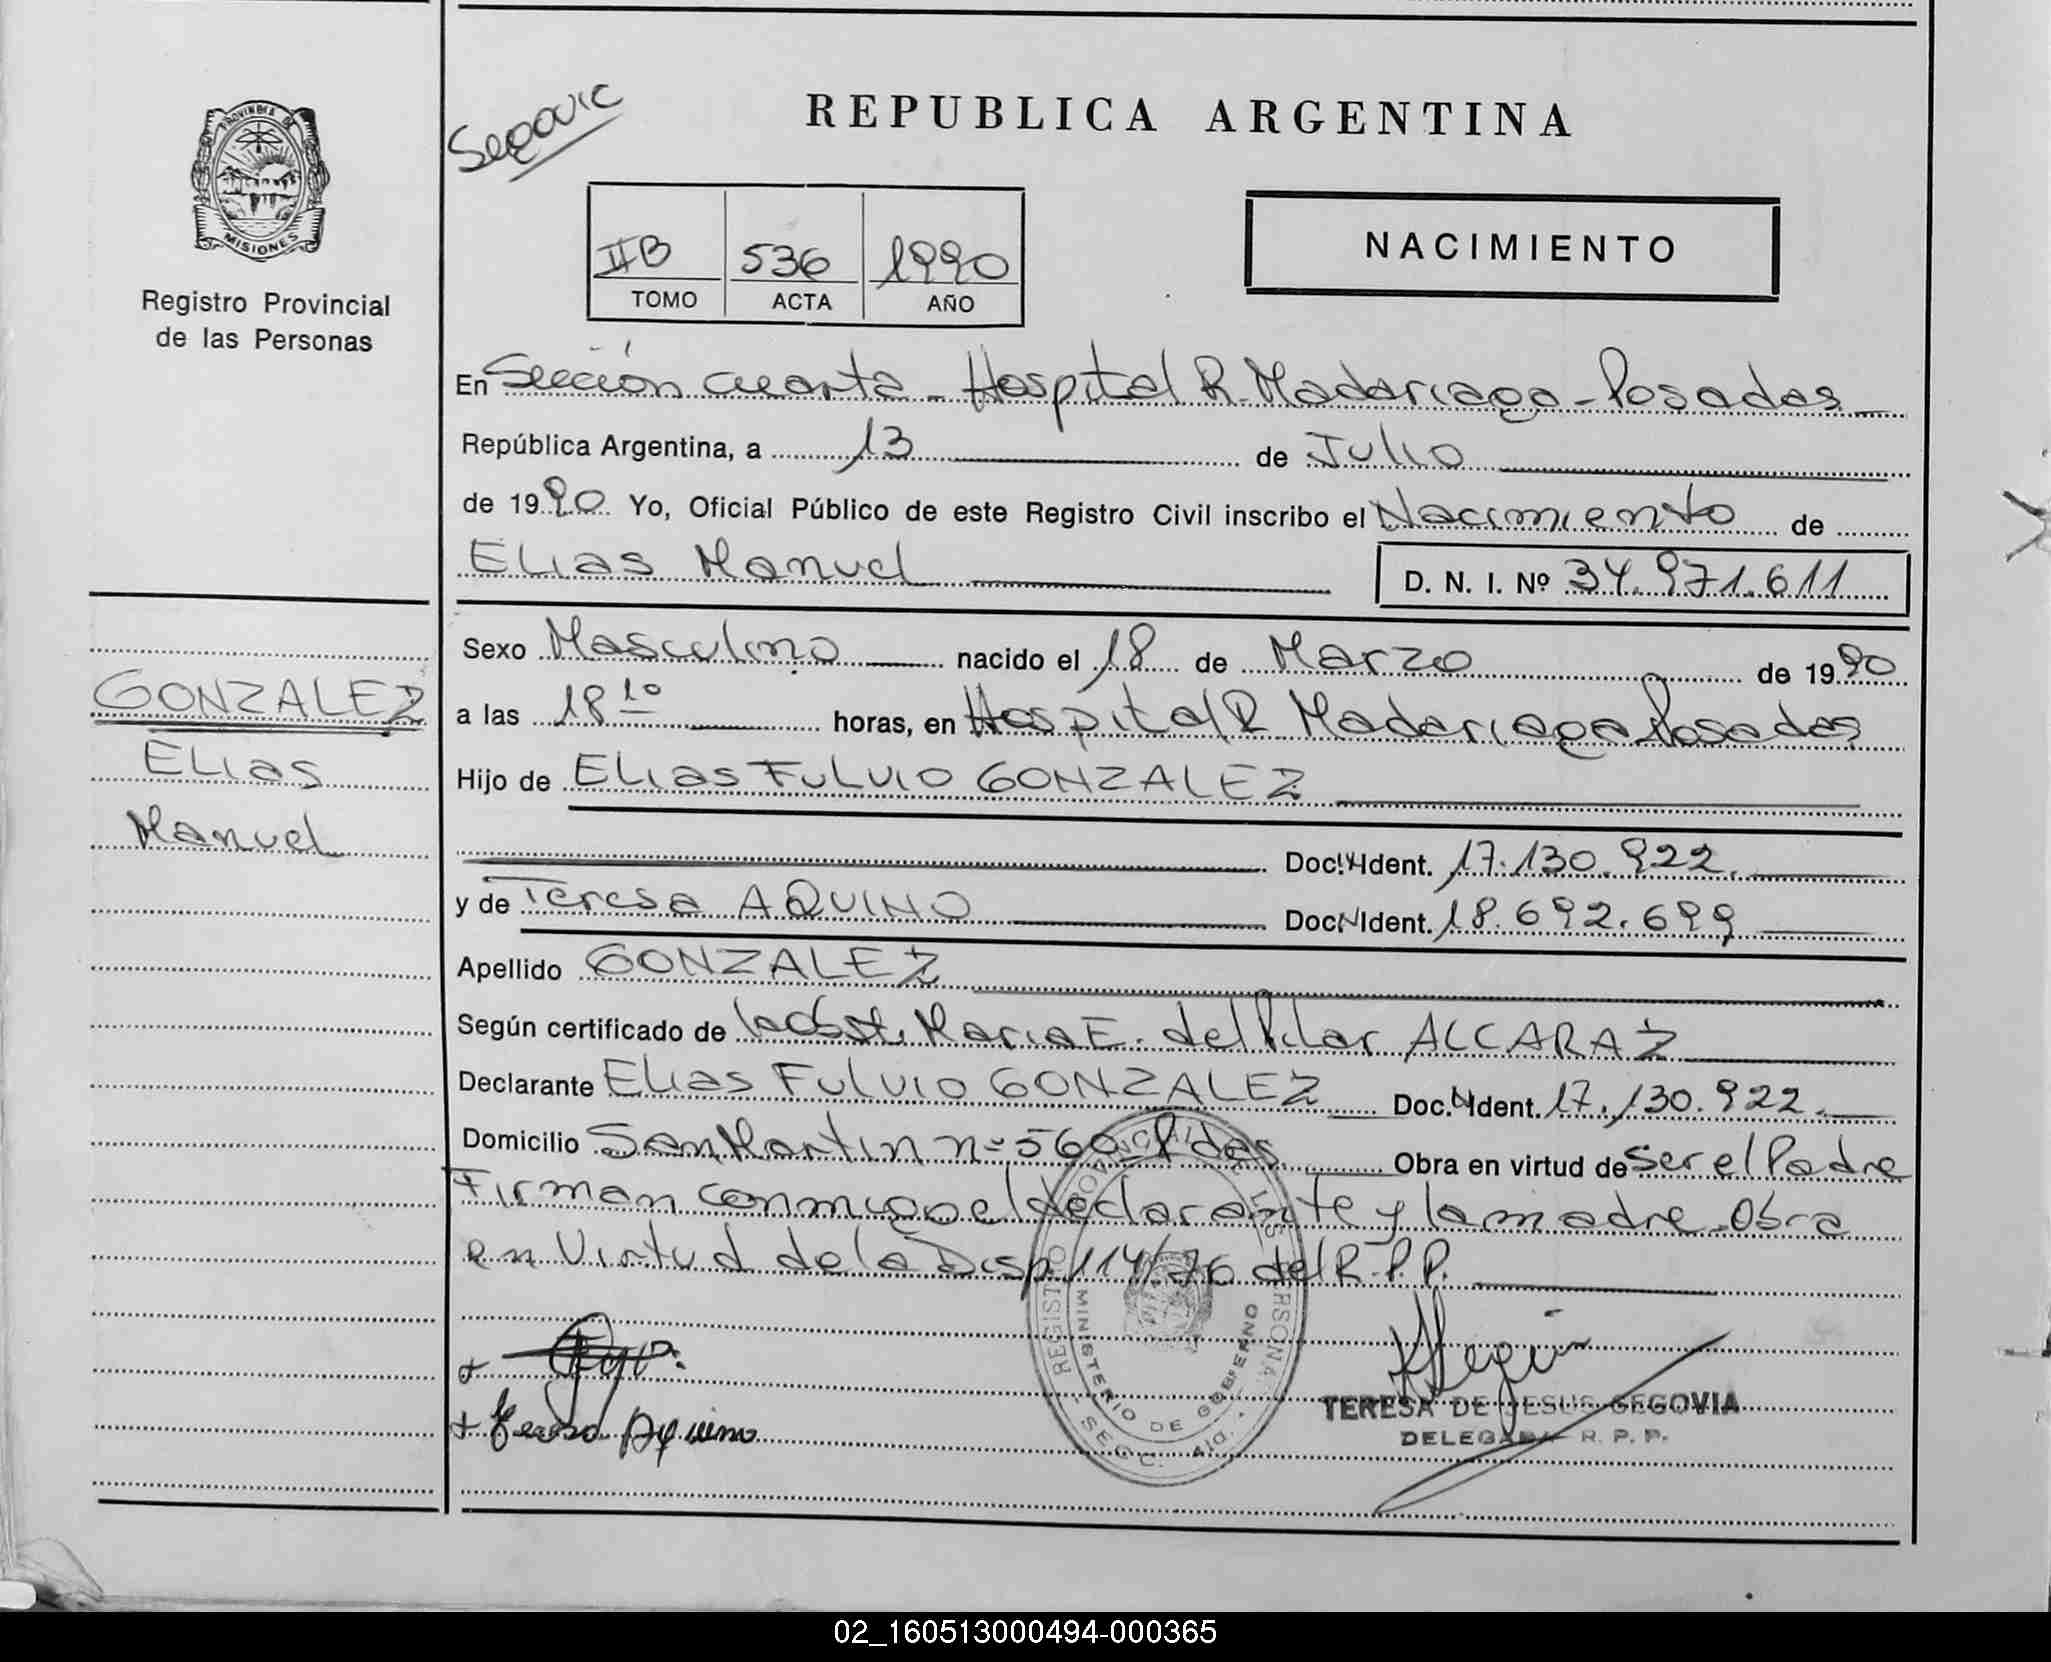 PROVINCIA DE
MISIONES
Registro Provincial
de las Personas
GONZALEZ
ELIAS
Manuel
Segovia
REPUBLICA ARGENTINA
IIB 536 1990
TOMO ACTA AÑO
NACIMIENTO
En Sección cuarta - Hospital R. Madariaga - Posadas
República Argentina, a 13 de Julio
de 1990 Yo, Oficial Público de este Registro Civil inscribo el Nacimiento de
ELIAS Manuel D. N. I. Nº 34.971.611
Sexo Masculino nacido el 18 de Marzo de 1990
a las 18 10 horas, en Hospital R Madariaga Posadas
Hijo de ELIAS FULVIO GONZALEZ
Doc. Ident. 17.130.922.
y de Teresa AQUINO Doc. Ident. 18.692.699
Apellido GONZALEZ
Según certificado de la Obst. Maria E. del Pilar ALCARAZ
Declarante ELIAS FULVIO GONZALEZ Doc. Ident. 17.130.922.
Domicilio San Martin nº 560 - Pdas Obra en virtud de ser el Padre
Firman conmigo el declarante y la madre - Obra
en Virtud de la Disp. 114/76 del R.P.P.
REGISTRO PROVINCIAL DE LAS PERSONAS
MINISTERIO DE GOBIERNO
Teresa Aquino
TERESA DE JESUS SEGOVIA
DELEGADA R. P. P.
02_160513000494-000365